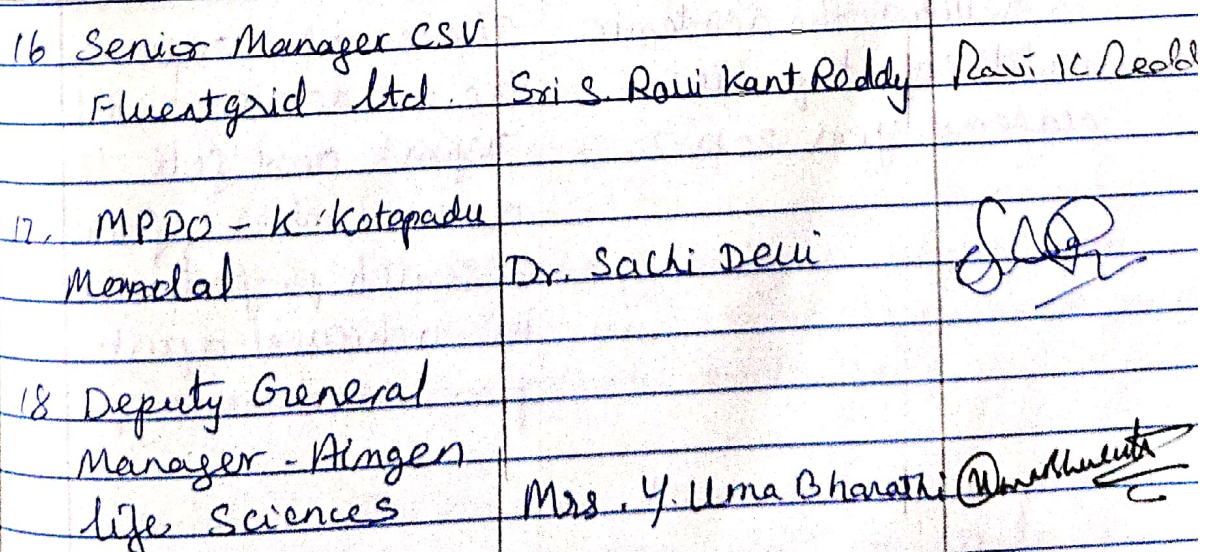 16 Senior Manager CSV
Fluentgrid Ltd. Sri S. Ravi Kant Reddy Ravi K Redd
17. MPDO - K. Kotapadu
Mandal Dr. Sachi Devi
18 Deputy General
Manager - Aingen
life Sciences Mrs. Y. Uma Bharathi UmaBharathi